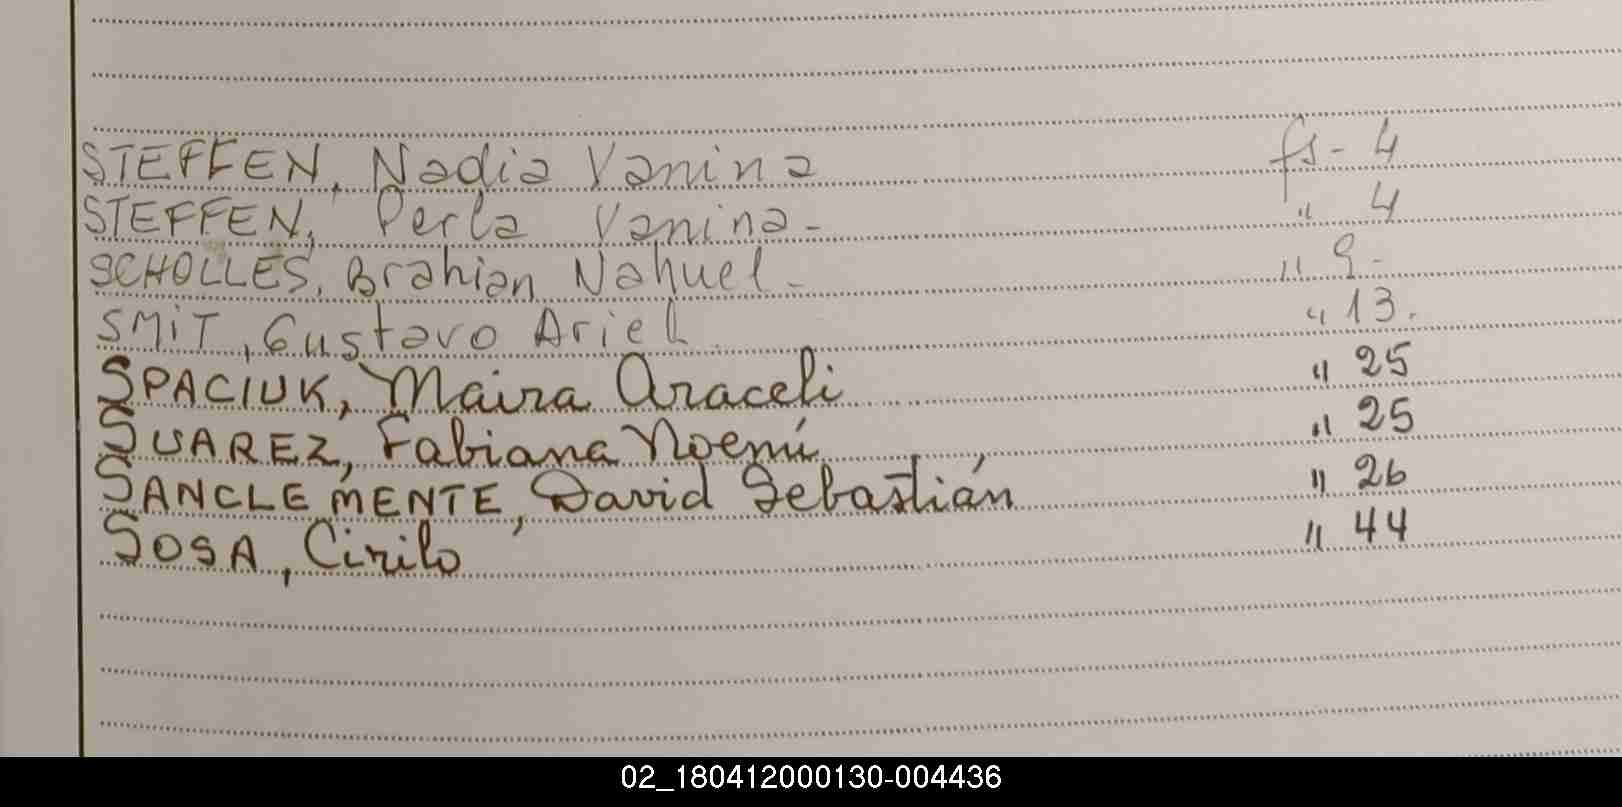 STEFFEN, Nadia Vanina fs- 4
STEFFEN, Perla Vanina- " 4
SCHOLLES, Brahian Nahuel- " 9-
SMiT, Gustavo Ariel " 13.
SPACIUK, Maira Araceli " 25
SUAREZ, Fabiana Noemí " 25
SANCLEMENTE, David Sebastián " 26
SOSA, Cirilo " 44
02_180412000130-004436